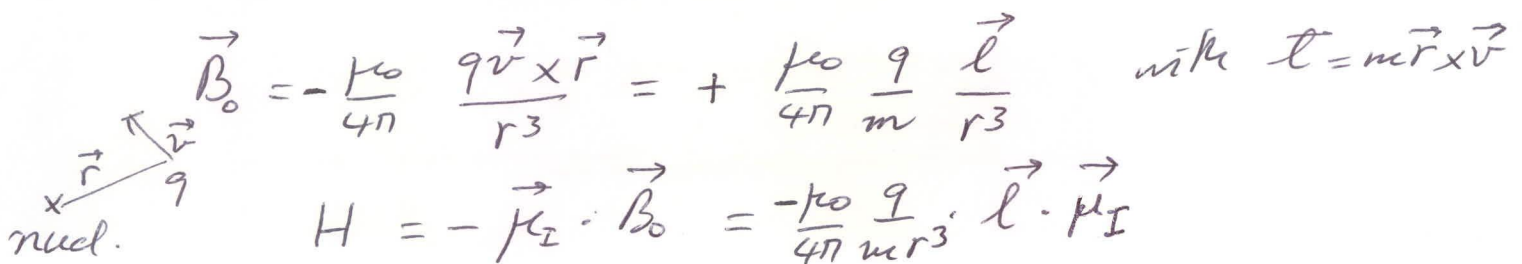 B⃗₀ = - μ₀/4π qv⃗ × r⃗/r³ = + μ₀/4π q/m l⃗/r³ with l⃗ = m r⃗ × v⃗
r⃗ v⃗ q
nucl. H = - μ⃗_I · B⃗₀ = -μ₀/4π q/mr³ · l⃗ · μ⃗_I